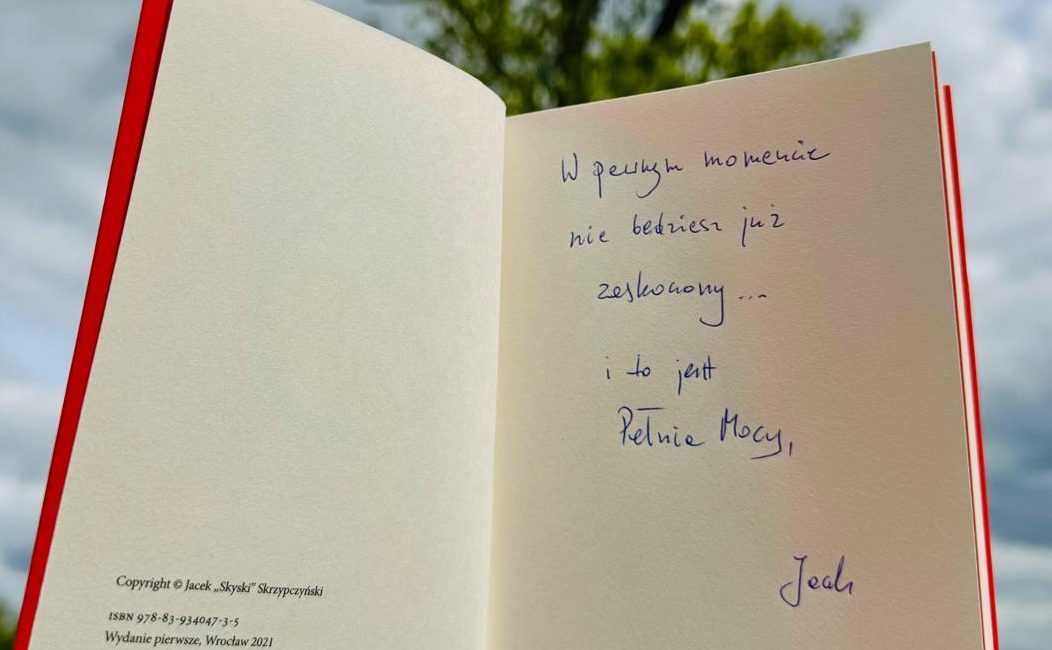 Copyright © Jacek „Skyski” Skrzypczyński
ISBN 978-83-934047-3-5
Wydanie pierwsze, Wrocław 2021
W pewnym momencie
nie będziesz już
zaskoczony...
i to jest
Pełnia Mocy,
Jacek